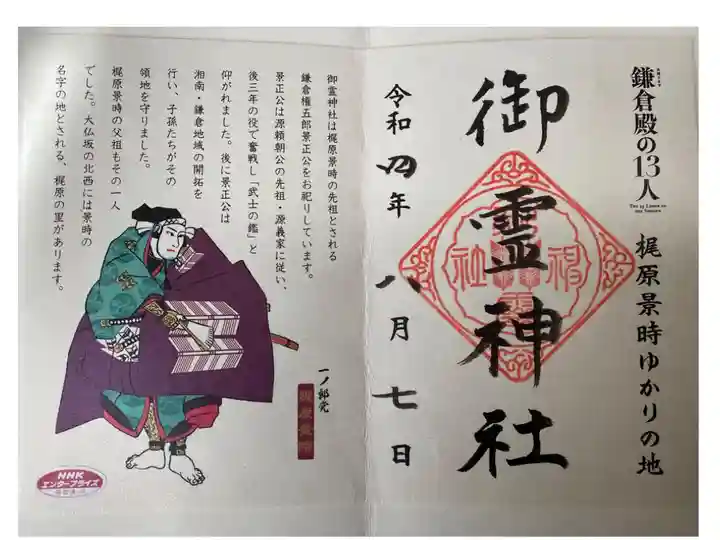 鎌倉殿の13人
THE 13 LORDS OF
THE SHOGUN
梶原景時ゆかりの地
御霊神社
令和四年 八月 七日
御霊神社は梶原景時の先祖とされる
鎌倉権五郎景正公をお祀りしています。
景正公は源頼朝公の先祖・源義家に従い、
後三年の役で奮戦し「武士の鑑」と
仰がれました。後に景正公は
湘南・鎌倉地域の開拓を
行い、子孫たちがその
領地を守りました。
梶原景時の父祖もその一人
でした。大仏坂の北西には景時の
名字の地とされる、梶原の里があります。
一ノ郎党
梶原景時
NHK
エンタープライズ